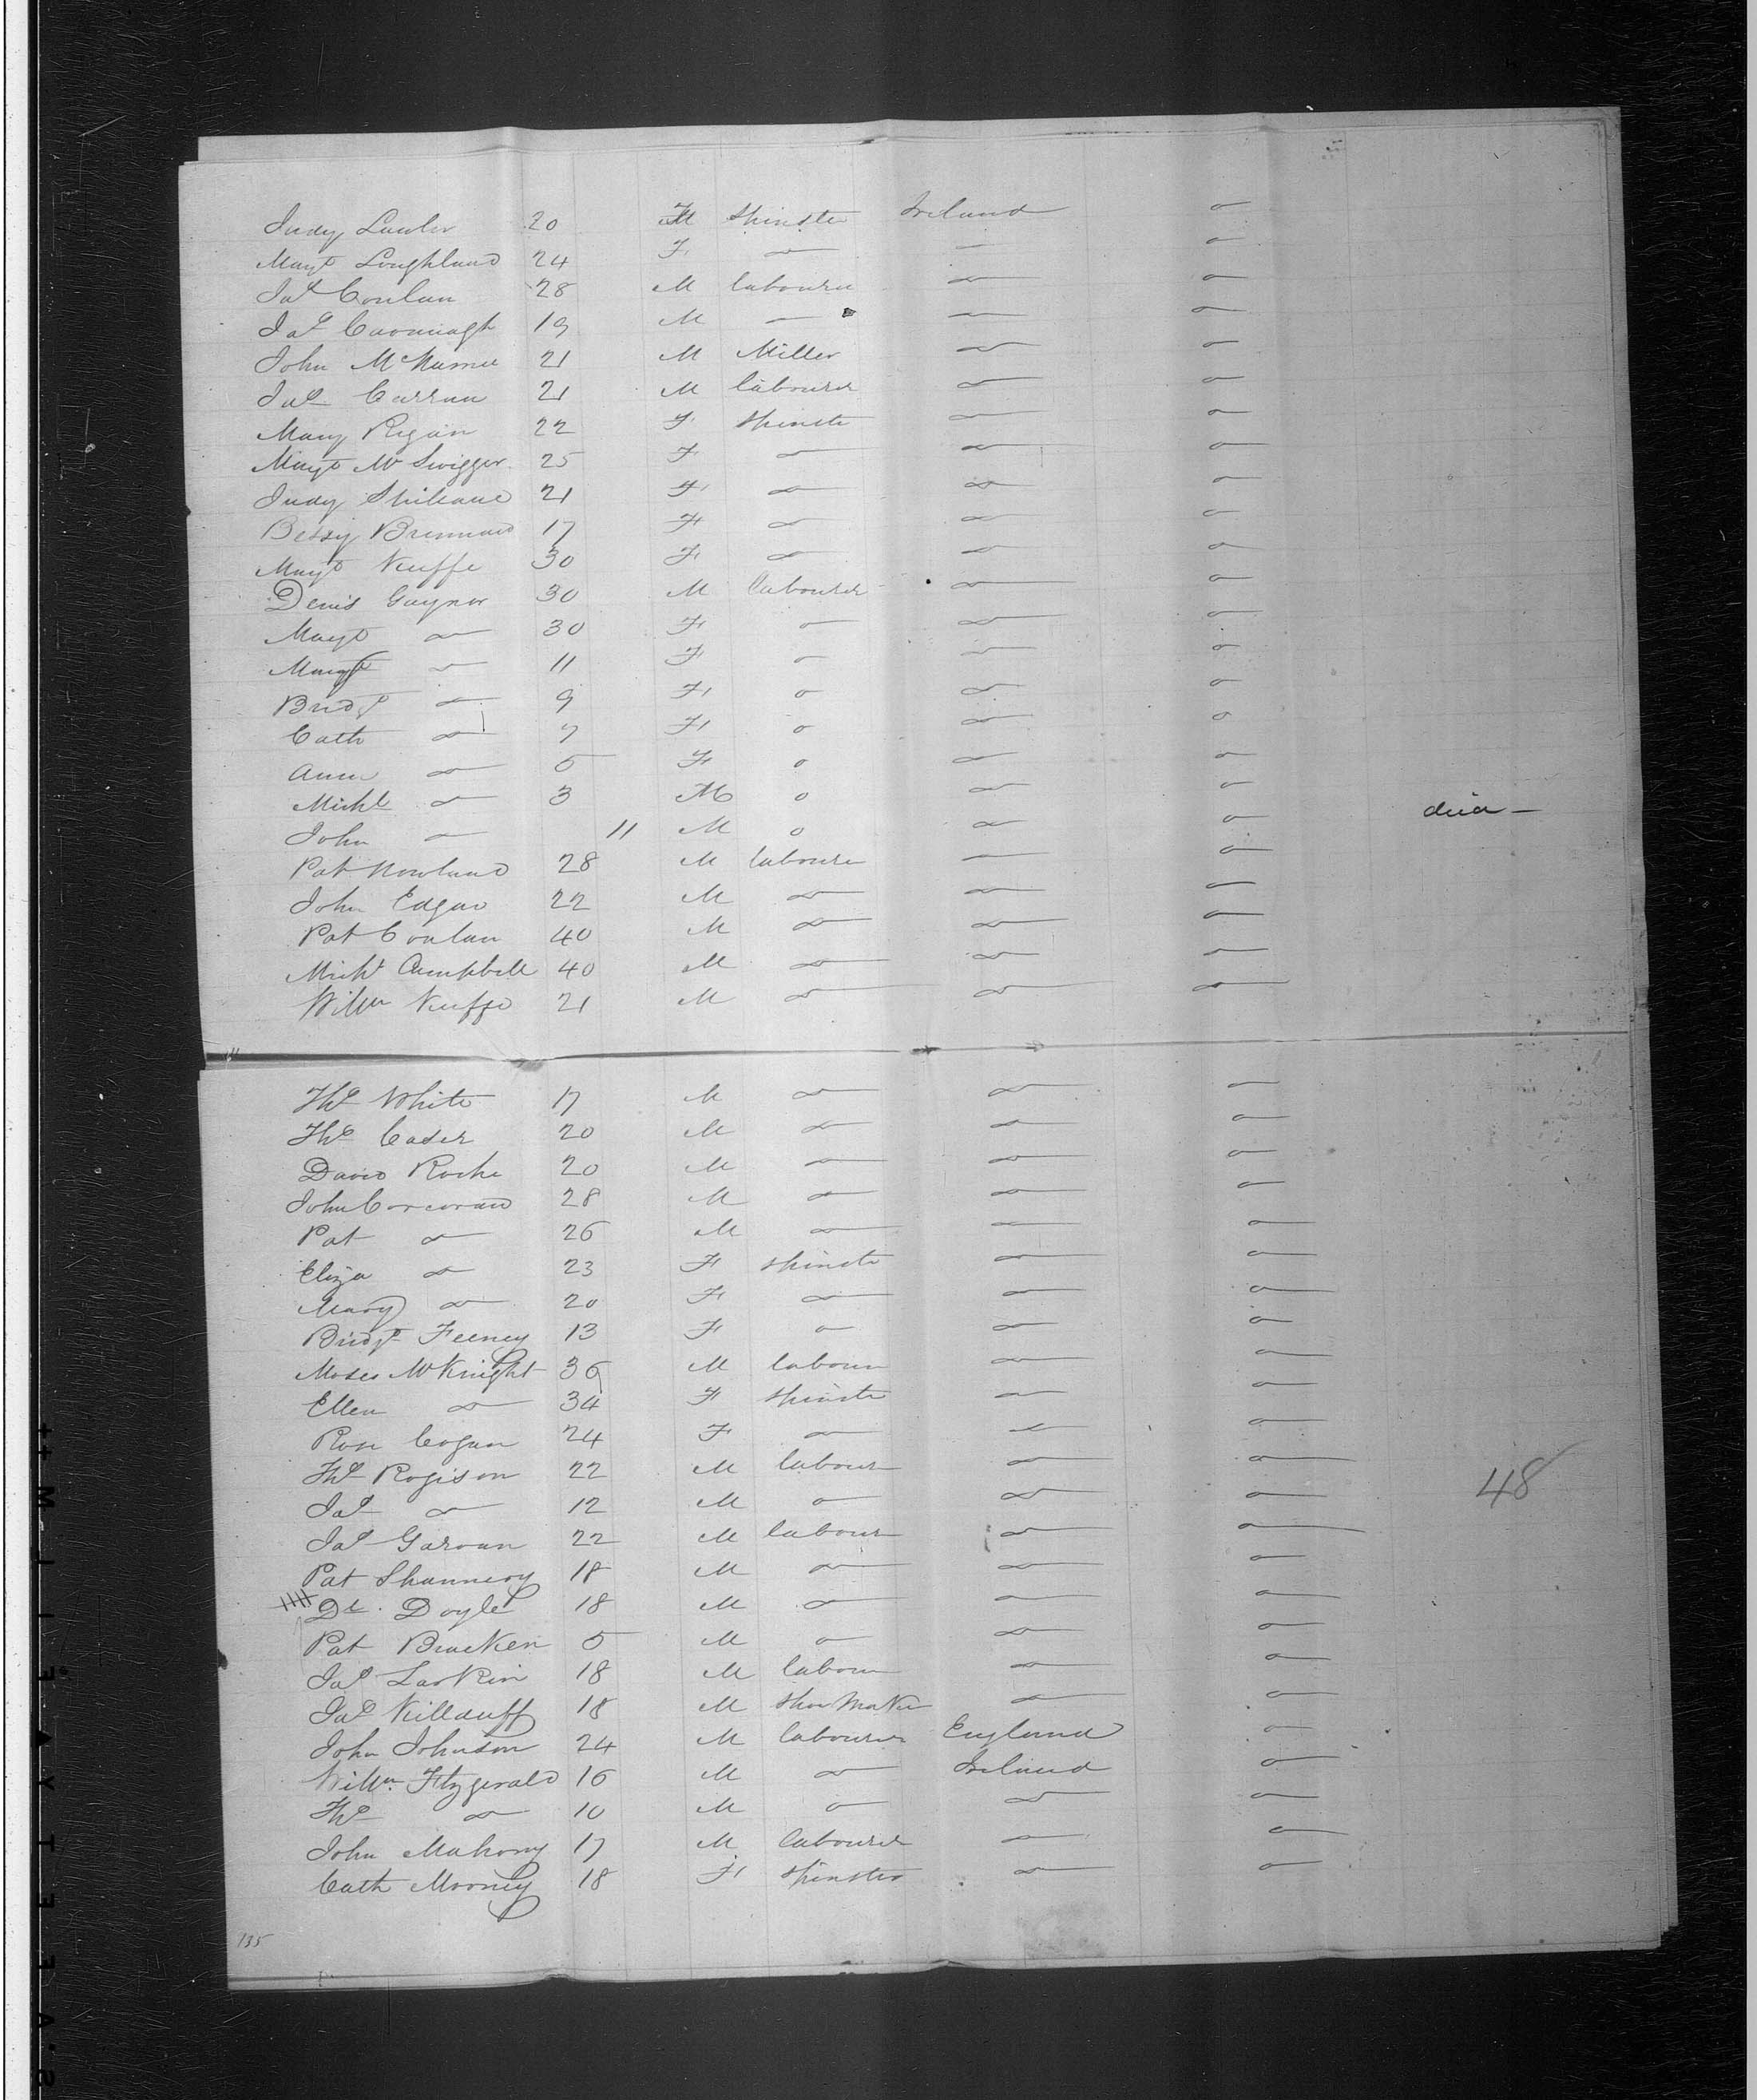 Judy Lawlor 20 F Spinster Ireland "
Margt Loughland 24 F " " "
Jas Conlan 28 M labourer " "
Jas Cavanagh 19 M " " "
John McNamee 21 M Miller " "
Jas Curran 21 M labourer " "
Mary Rigan 22 F Spinster " "
Margt Mc Swigger 25 F " " "
Judy Spillane 21 F " " "
Bessy Brennan 17 F " " "
Margt Keeffe 30 F " " "
Denis Gaynor 30 M labourer " "
Margt " 30 F " " "
Margt " 11 F " " "
Bridgt " 9 F " " "
Cath " 7 F " " "
Ann " 5 F " " "
Michl " 3 M " " "
John " 11 M " " " died
Pat Nowland 28 M labourer " "
John Edgar 22 M " " "
Pat Conlan 40 M " " "
Michl Campbell 40 M " " "
Willm Keeffe 21 M " " "
Thos White 17 M " " "
Thos Caser 20 M " " "
David Roche 20 M " " "
John Corcoran 28 M " " "
Pat " 26 M " " "
Eliza " 23 F spinster " "
Mary " 20 F " " "
Bridgt Feeney 13 F " " "
Moses McKnight 36 M labour " "
Ellen " 34 F Spinster " "
Rose Cogan 24 F " " "
Thos Rogison 22 M labour " "
Jas " 12 M " " "
Jas Garvan 22 M labour " "
Pat Shannery 18 M " " "
Dl. Doyle 18 M " " "
Pat Bracken 5 M " " "
Jas Larkin 18 M labour " "
Jas Killduff 18 M Shoe Maker " "
John Johnson 24 M labourer England "
Willm Fitzgerald 16 M " Ireland "
Thos " 10 M " " "
John Mahony 17 M labourer " "
Cath Mooney 18 F Spinster " "
48
135